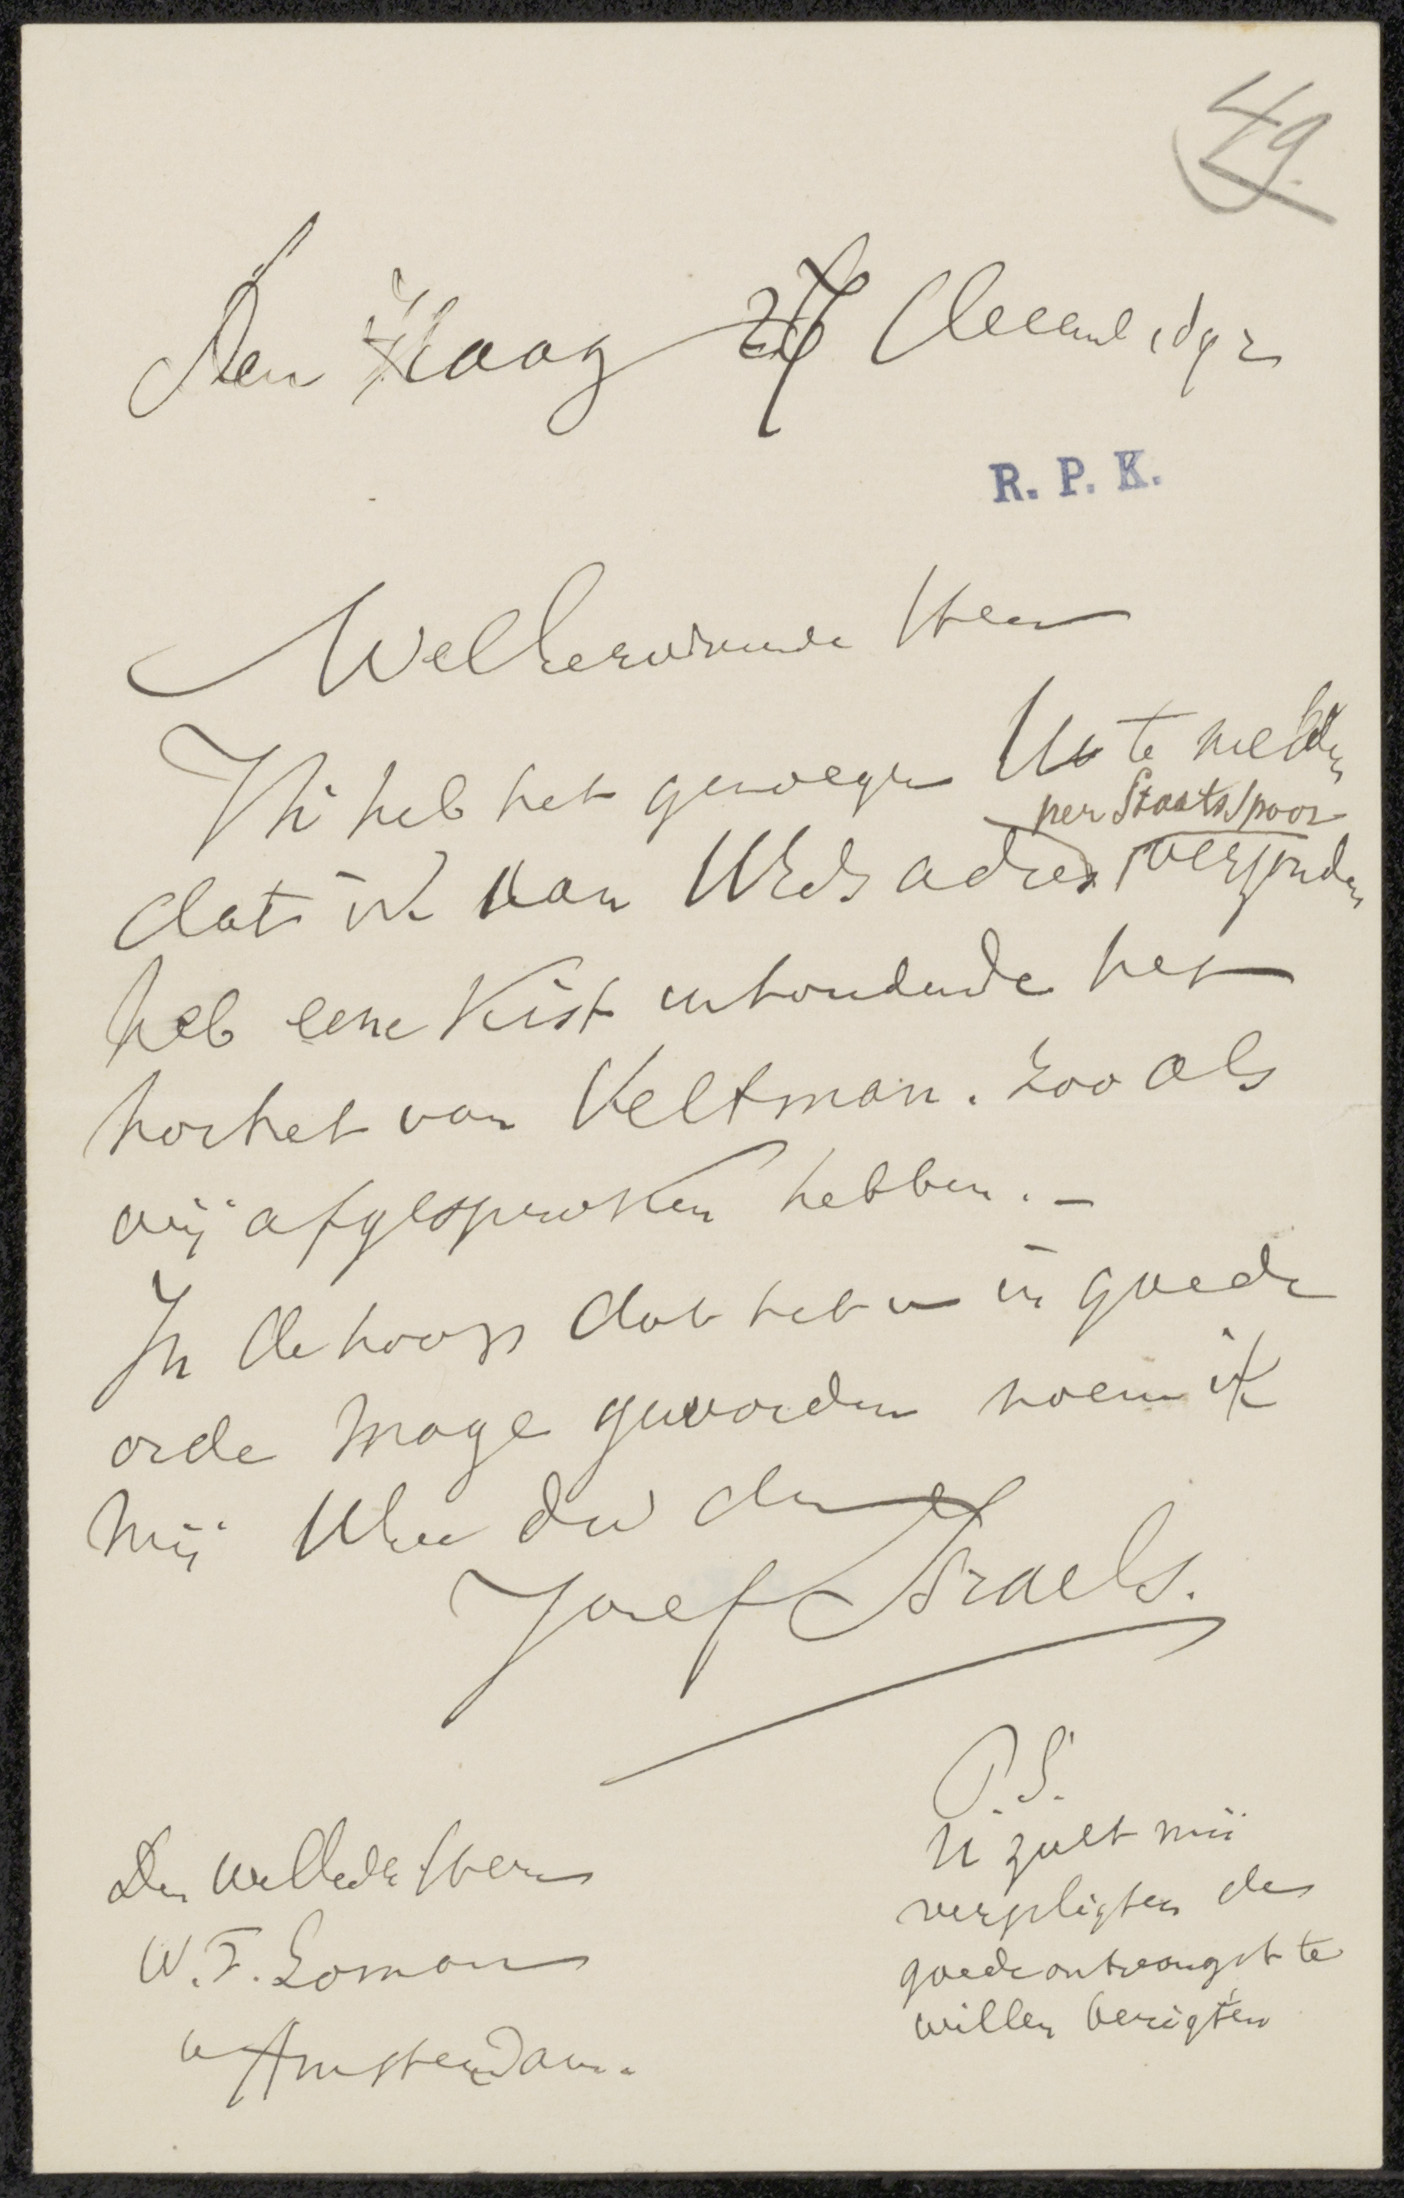 49.
Den Haag 27 Decemb 1892
R. P. K.
Weledelgeboren Heer
Ik heb het genoegen U te melden
per Staatsspoor
dat ik aan UEds adres verzonden
heb eene Kist inhoudende het
portret van Veltman. Zooals
wij afgesproken hebben. –
In de hoop dat het u in goede
orde moge geworden noem ik
mij UEd dw dr
Jozef Israels.
P.S.
U zult mij
verpligten de
goede ontvangst te
willen berigten
Den WelEde Heer
W. F. Loman
Amsterdam.